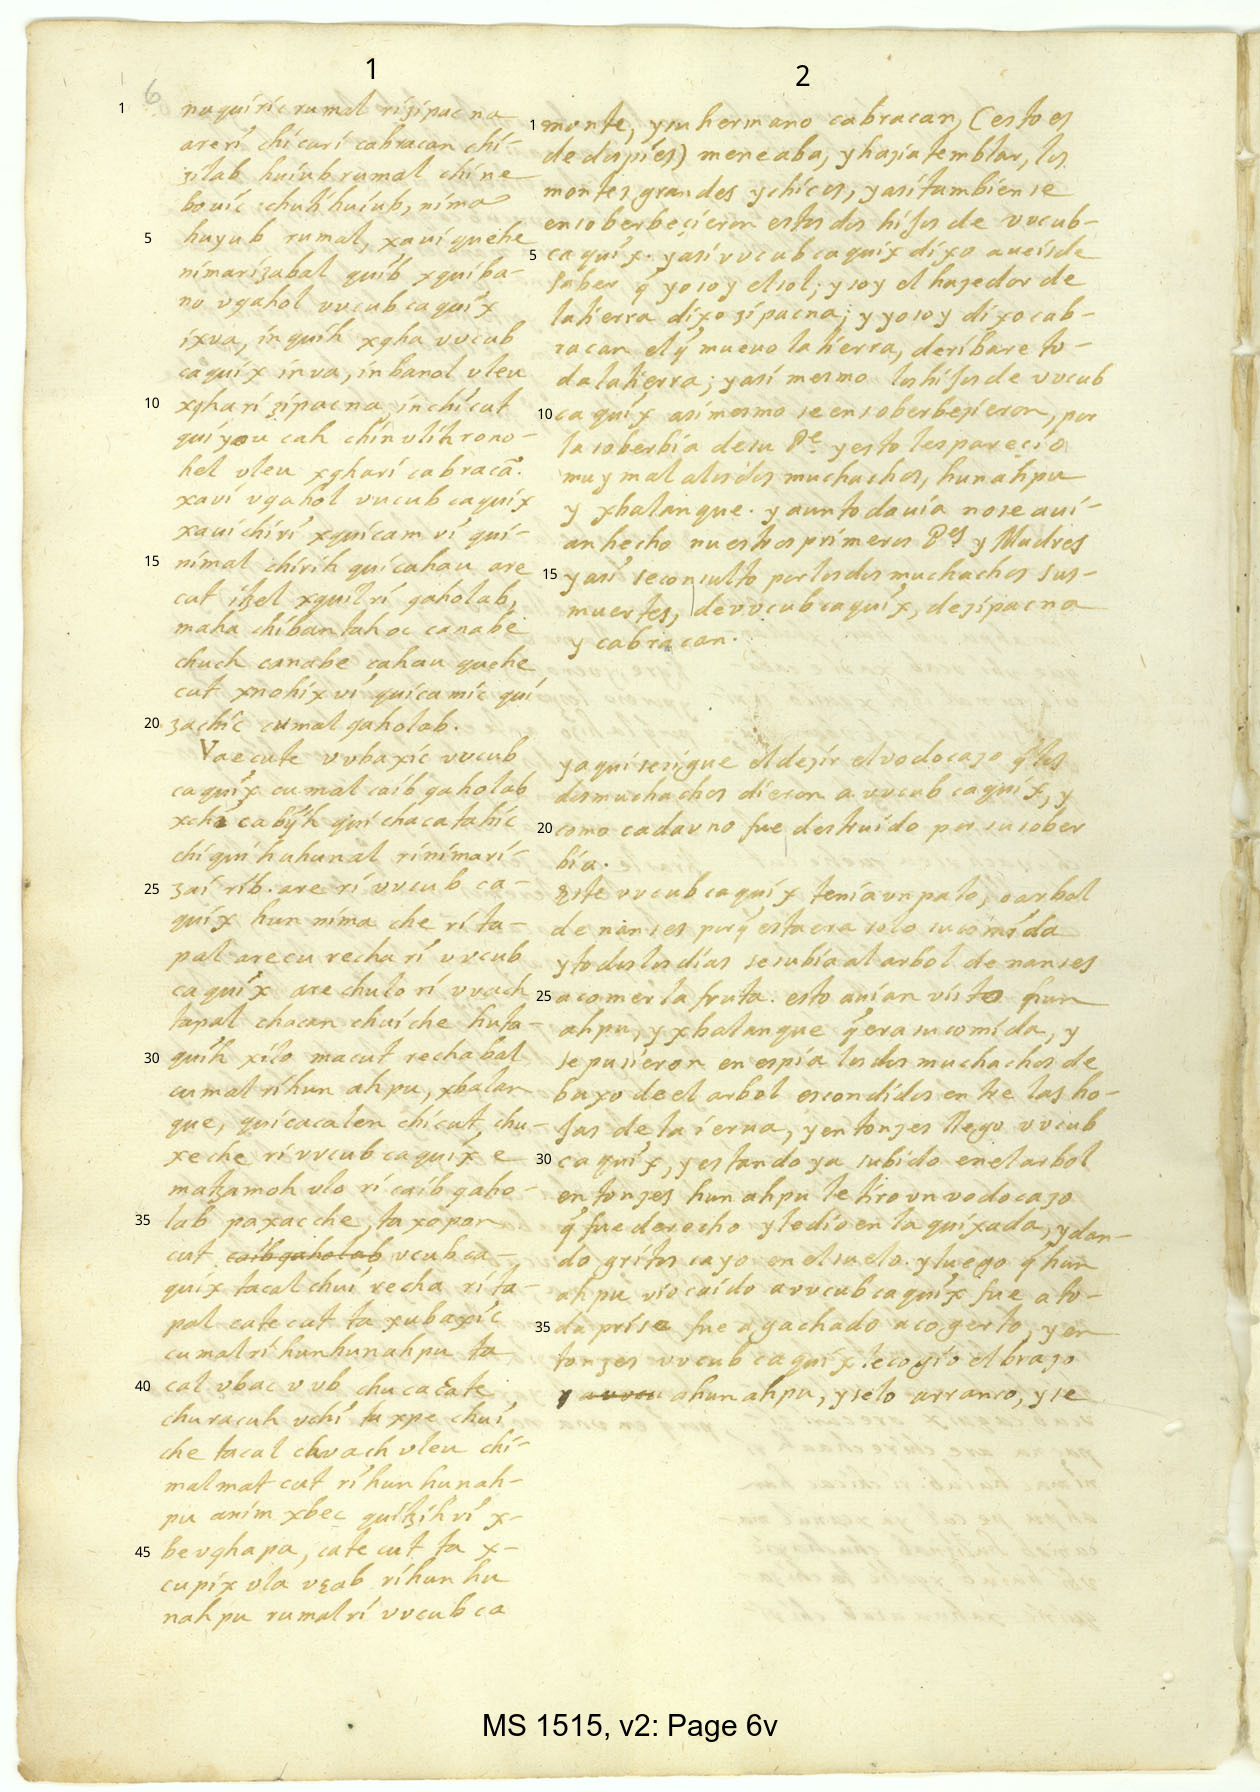 6
1
nuquiric rumal ri zipacna
areri chicuri cabracan chi-
zilab huiub rumal chi ne
bouic chuti huiub, nima
huyub rumal, xaui quehe
nimarizabal quib xquiba-
no vgahol vvcub caquix
ixva, in quih xqha vvcub
caquix inva, in banol vleu
xqhari zipacna, in chicut
quiyou cah chin vlih rono-
hel vleu xqhari cabracã.
xavi vgahol vucub caquix
xauichiri xquicam ri qui-
nimal chirih quicahau are
cut itzel xquil ri gaholab,
maha chiban tahoc canabe
chuch canabe cahau quehe
cut xnohix vi quicamic qui
zachic cumal gaholab.
Vae cute vvbaxic vvcub
caquix cumal caib gaholab
xchi cabijh qui chacatahic
chiquihuhunal rinimari-
zai rib. are ri vvcub ca-
quix hun nima che ri ta-
pal arecu recha ri vvcub
caquix are chulo ri vvach
tapal chacan chuiche huta-
quih xilo macut rechabal
cumal rihun ahpu, xbalan
que, quicacalen chicut, chu-
xeche ri vvcub caquix e
matzamoh vlo ri caib gaho-
lab paxac che, ta xopon
cut caib gaholab vcub ca-
quix tacal chui recha ri ta-
pal catecut ta xubaxic
cumal ri hunhunahpu ta
cal vbac vvb chu cacate
churacuh vchi ta xpe chui
che tacal chvach vleu chi-
malmat cut ri hun hunah-
pu anim xbec quitzih vi x-
be vqhapa, cate cut ta x-
cupix vla vɛab ri hun hu
nahpu rumal ri vvcub ca
2
monte, y su hermano cabracan, (esto es
de dos pies) meneaba, y hazia temblar, los
montes grandes y chicos, y asi tambien se
ensoberbeçieron estos dos hijos de vucub-
caquix. y asi vvcub caquix dixo aueis de
saber q̃ yo soy el sol; y soy el hazedor de
la tierra dixo zipacna; y yo soy dixo cab-
racan el q̃ mueuo la tierra, deribare to-
da la tierra; y asi mesmo los hijos de vvcub
caquix asi mesmo se ensoberbezieron, por
la soberbia de su Pe. y esto les pareçio
muy mal a los dos muchachos, hunahpu
y xbalanque. y aun todauia no se aui-
an hecho nuestros primeros Pes y Madres
y asi se consulto por los dos muchachos sus-
muertes, de vvcub caquix, de zipacna
y cabracan.
y aqui se sigue el dezir el vodocazo q̃ los
dos muchachos dieron a vvcub caquix, y
como cada vno fue destruido por su sober
bia.
Este vvcub caquix tenia vn palo, o arbol
de nanses porq̃ esta era solo su comida
y todos los dias se subia al arbol de nanses
a comer la fruta. esto auian visto hun
ahpu, y xbalanque q̃ era su comida, y
se pusieron en espia los dos muchachos de
baxo de el arbol escondidos entre las ho-
jas de la ierua, y entonzes llego vvcub
caquix, y estando ya subido en el arbol
entonzes hun ahpu le tiro vn vodocazo
q̃ fue derecho y le dio en la quixada, y dan-
do gritos cayo en el suelo. y luego q̃ hun
ahpu vio caido a vvcub caquix fue a to-
da prisa fue agachado a cogerlo, y en
tonzes vvcub caquix le cogio el brazo
a hun ahpu, y selo arranco, y se
MS 1515, v2: Page 6v